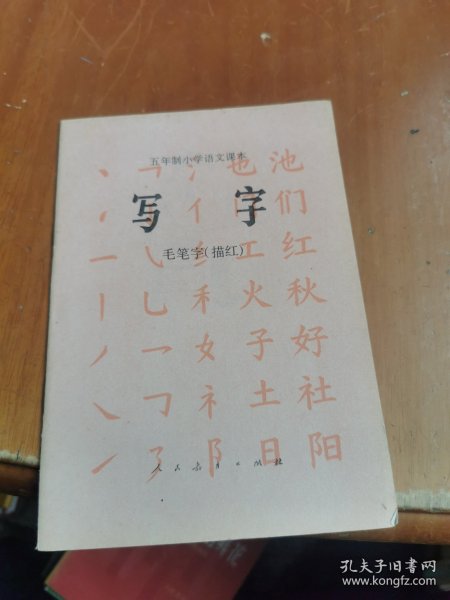 五年制小学语文课本
写字
毛笔字(描红)
丶 ㇇ 氵 也 池
亻 们
一 ㇂ 纟 工 红
丨 乚 禾 火 秋
丿 ㇀ 女 子 好
㇏ ㇆ 礻 土 社
㇀ ㇌ 阝 日 阳
人民教育出版社
孔夫子旧书网
www.kongfz.com